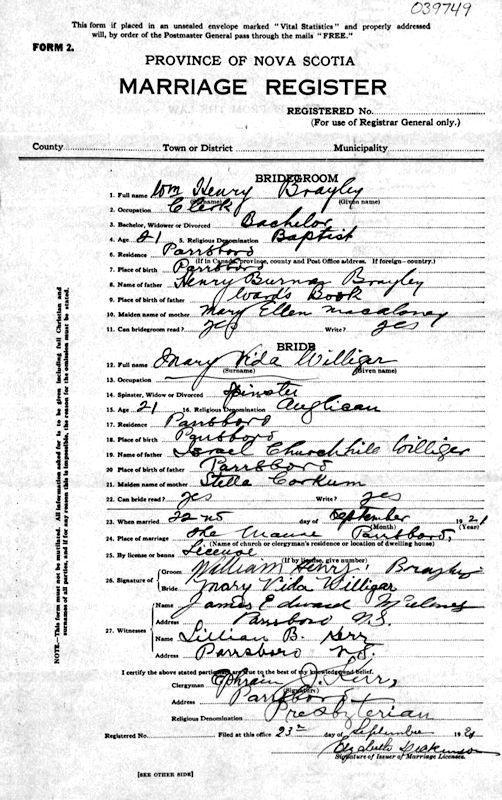 039749
This form if placed in an unsealed envelope marked "Vital Statistics" and properly addressed
will, by order of the Postmaster General pass through the mails "FREE."
FORM 2.
PROVINCE OF NOVA SCOTIA
MARRIAGE REGISTER
REGISTERED No.
(For use of Registrar General only.)
County Town or District Municipality
BRIDEGROOM
1. Full name Wm Henry Brayley
(Surname) (Given name)
2. Occupation Clerk
3. Bachelor, Widower or Divorced Bachelor
4. Age 21 5. Religious Denomination Baptist
6. Residence Parrsboro
(If in Canada, province, county and Post Office address. If foreign—country.)
7. Place of birth Parrsboro
8. Name of father Henry Burnam Brayley
9. Place of birth of father Ward's Brook
10. Maiden name of mother Mary Ellen Macaloney
11. Can bridegroom read? yes Write? yes
BRIDE
12. Full name Mary Vida Williger
(Surname) (Given name)
13. Occupation
14. Spinster, Widow or Divorced Spinster
15. Age 21 16. Religious Denomination Anglican
17. Residence Parrsboro
18. Place of birth Parrsboro
19. Name of father Israel Churchhile Williger
20. Place of birth of father Parrsboro
21. Maiden name of mother Stella Corkum
22. Can bride read? yes Write? yes
23. When married 22nd day of September 1921
(Month) (Year)
24. Place of marriage The Manse Parrsboro,
(Name of church or clergyman's residence or location of dwelling house)
25. By license or banns License
(If by license, give number)
26. Signature of Groom William Henry Brayley
Bride Mary Vida Willigar
27. Witnesses Name James Edward
Address Parrsboro N.S.
Name Lillian B. Kerr
Address Parrsboro N.S.
I certify the above stated particulars are true to the best of my knowledge and belief.
Clergyman Ephraim J. Kerr,
(Signature)
Address Parrsboro
Religious Denomination Presbyterian
Registered No. Filed at this office 23rd day of September 1921
Elizabeth Dickinson
Signature of Issuer of Marriage Licenses.
[SEE OTHER SIDE]
NOTE.—This form must not be mutilated. All information asked for is to be given including full Christian and
surnames of all parties, and if for any reason this is impossible, the reason for the omission must be stated.